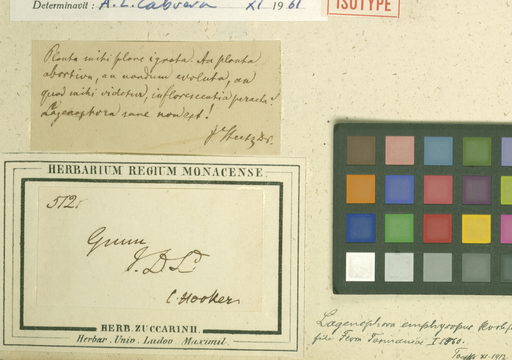 Determinavit: A. L. Cabrera XI 1961
ISOTYPE
Planta mihi plane ignota. An planta
abortiva, an nondum evoluta, an
quod mihi videtur, inflorescentia peracta?
Lagenophora sane non est!
HERBARIUM REGIUM MONACENSE.
512.
Gunn
V. D. L.
C. Hooker
HERB. ZUCCARINII.
Herbar. Univ. Ludov. Maximil.
Lagenophora
fide Flora Tasmaniae I 1860.
XI. 1912